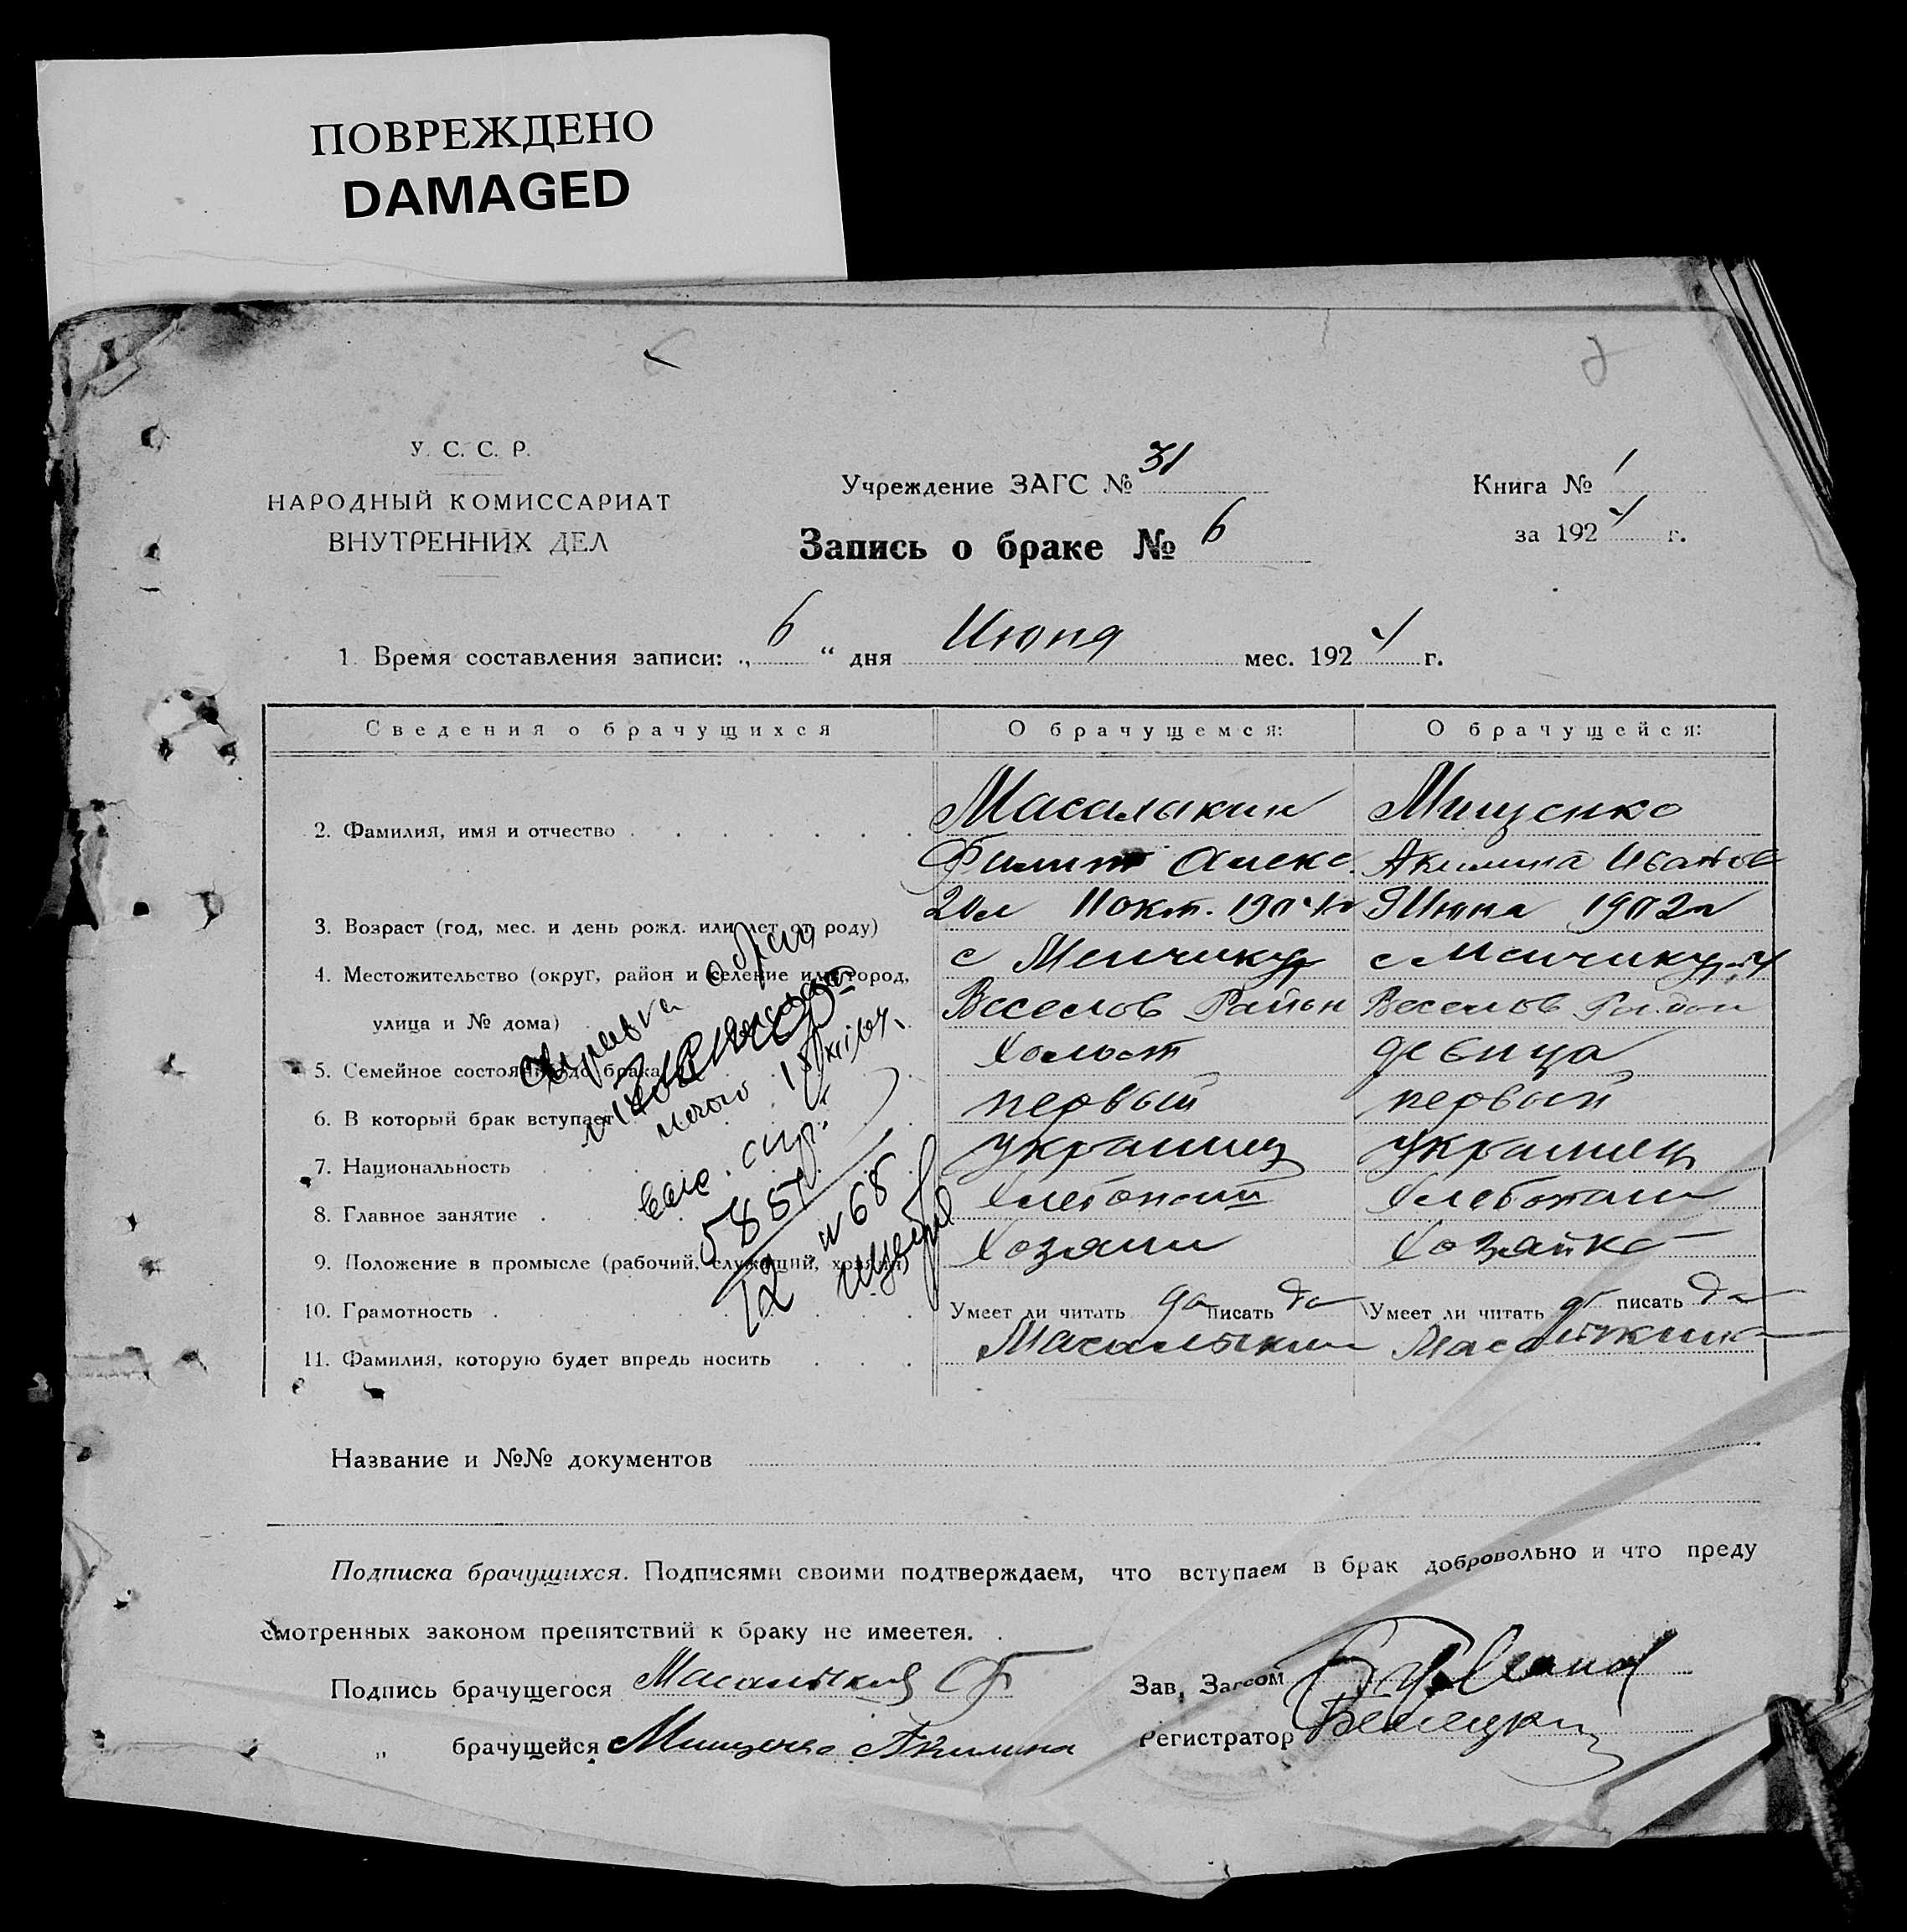 ПОВРЕЖДЕНО
DAMAGED
У. С. С. Р.
НАРОДНЫЙ КОМИССАРИАТ
ВНУТРЕННИХ ДЕЛ
Учреждение ЗАГС № 31
Книга № 1
Запись о браке № 6
за 1924 г.
1. Время составления записи: „6“ дня Июня мес. 1924 г.
Сведения о брачущихся
О брачущемся:
О брачущейся:
2. Фамилия, имя и отчество
Масалыкин
Мищенко
Филип Алекс.
Акилина Иванов
3. Возраст (год, мес. и день рожд. или лет от роду)
20л 11 окт. 1904 г
1902 г
4. Местожительство (округ, район и селение или город,
с Менчикур
с Менчикур
улица и № дома)
Веселов Район
Веселов Район
5. Семейное состояние до брака
Холост
девица
6. В который брак вступает
первый
первый
7. Национальность
украинец
украинец
8. Главное занятие
Хлебопаш
Хлебопаш
9. Положение в промысле (рабочий, служащий, хозяин)
Хозяин
Хозяйка
10. Грамотность
Умеет ли читать да писать да
Умеет ли читать да писать да
11. Фамилия, которую будет впредь носить
Масалыкин
Масалыкина
Справка о браке
5851
12
Название и №№ документов
Подписка брачущихся. Подписями своими подтверждаем, что вступаем в брак добровольно и что преду
смотренных законом препятствий к браку не имеетея.
Подпись брачущегося Масалыкин Ф
Зав. Загсом
„ брачущейся Мищенко Акилина
Регистратор